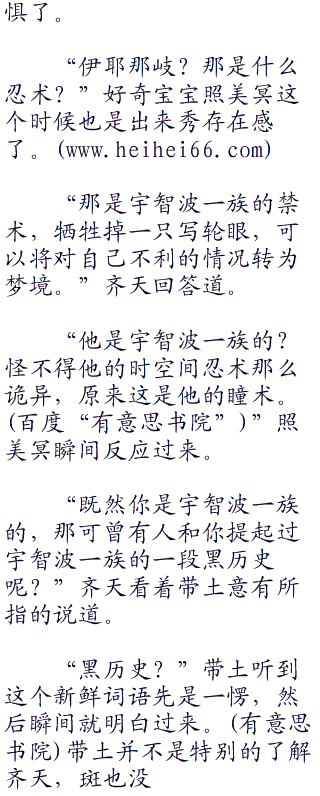 惧了。
“伊耶那岐？那是什么
忍术？”好奇宝宝照美冥这
个时候也是出来秀存在感
了。(www.heihei66.com)
“那是宇智波一族的禁
术，牺牲掉一只写轮眼，可
以将对自己不利的情况转为
梦境。”齐天回答道。
“他是宇智波一族的？
怪不得他的时空间忍术那么
诡异，原来这是他的瞳术。
(百度“有意思书院”)”照
美冥瞬间反应过来。
“既然你是宇智波一族
的，那可曾有人和你提起过
宇智波一族的一段黑历史
呢？”齐天看着带土意有所
指的说道。
“黑历史？”带土听到
这个新鲜词语先是一愣，然
后瞬间就明白过来。(有意思
书院)带土并不是特别的了解
齐天，斑也没